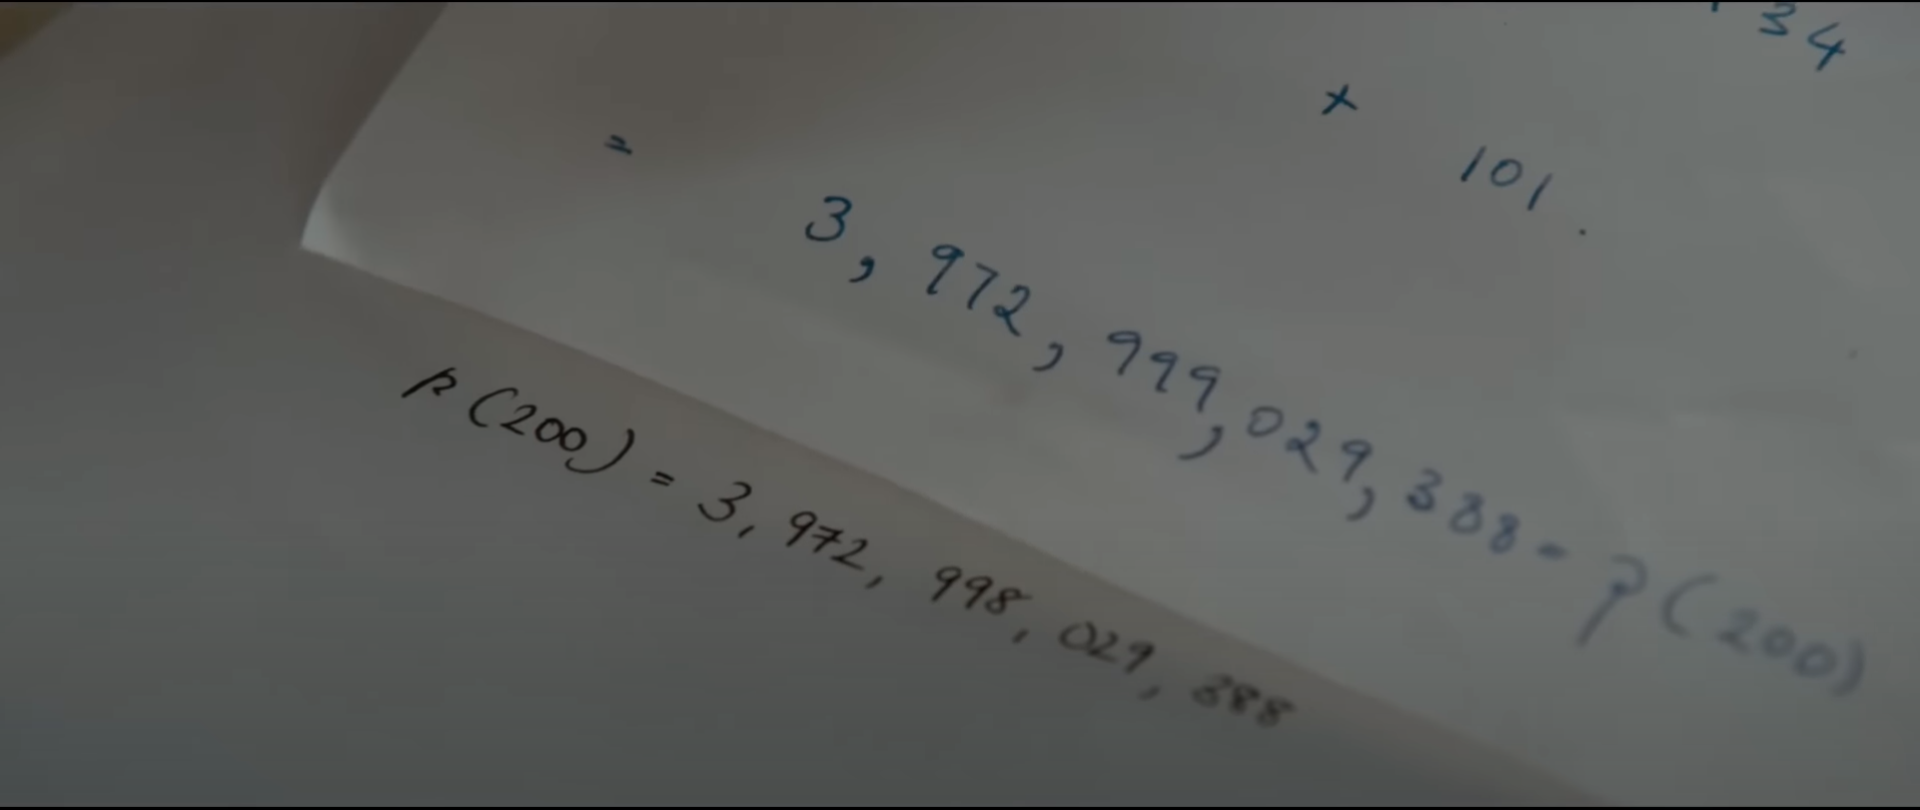 34
+ 101.
= 3,972,999,029,388 - p(200)
p(200) = 3,972,998,029,388